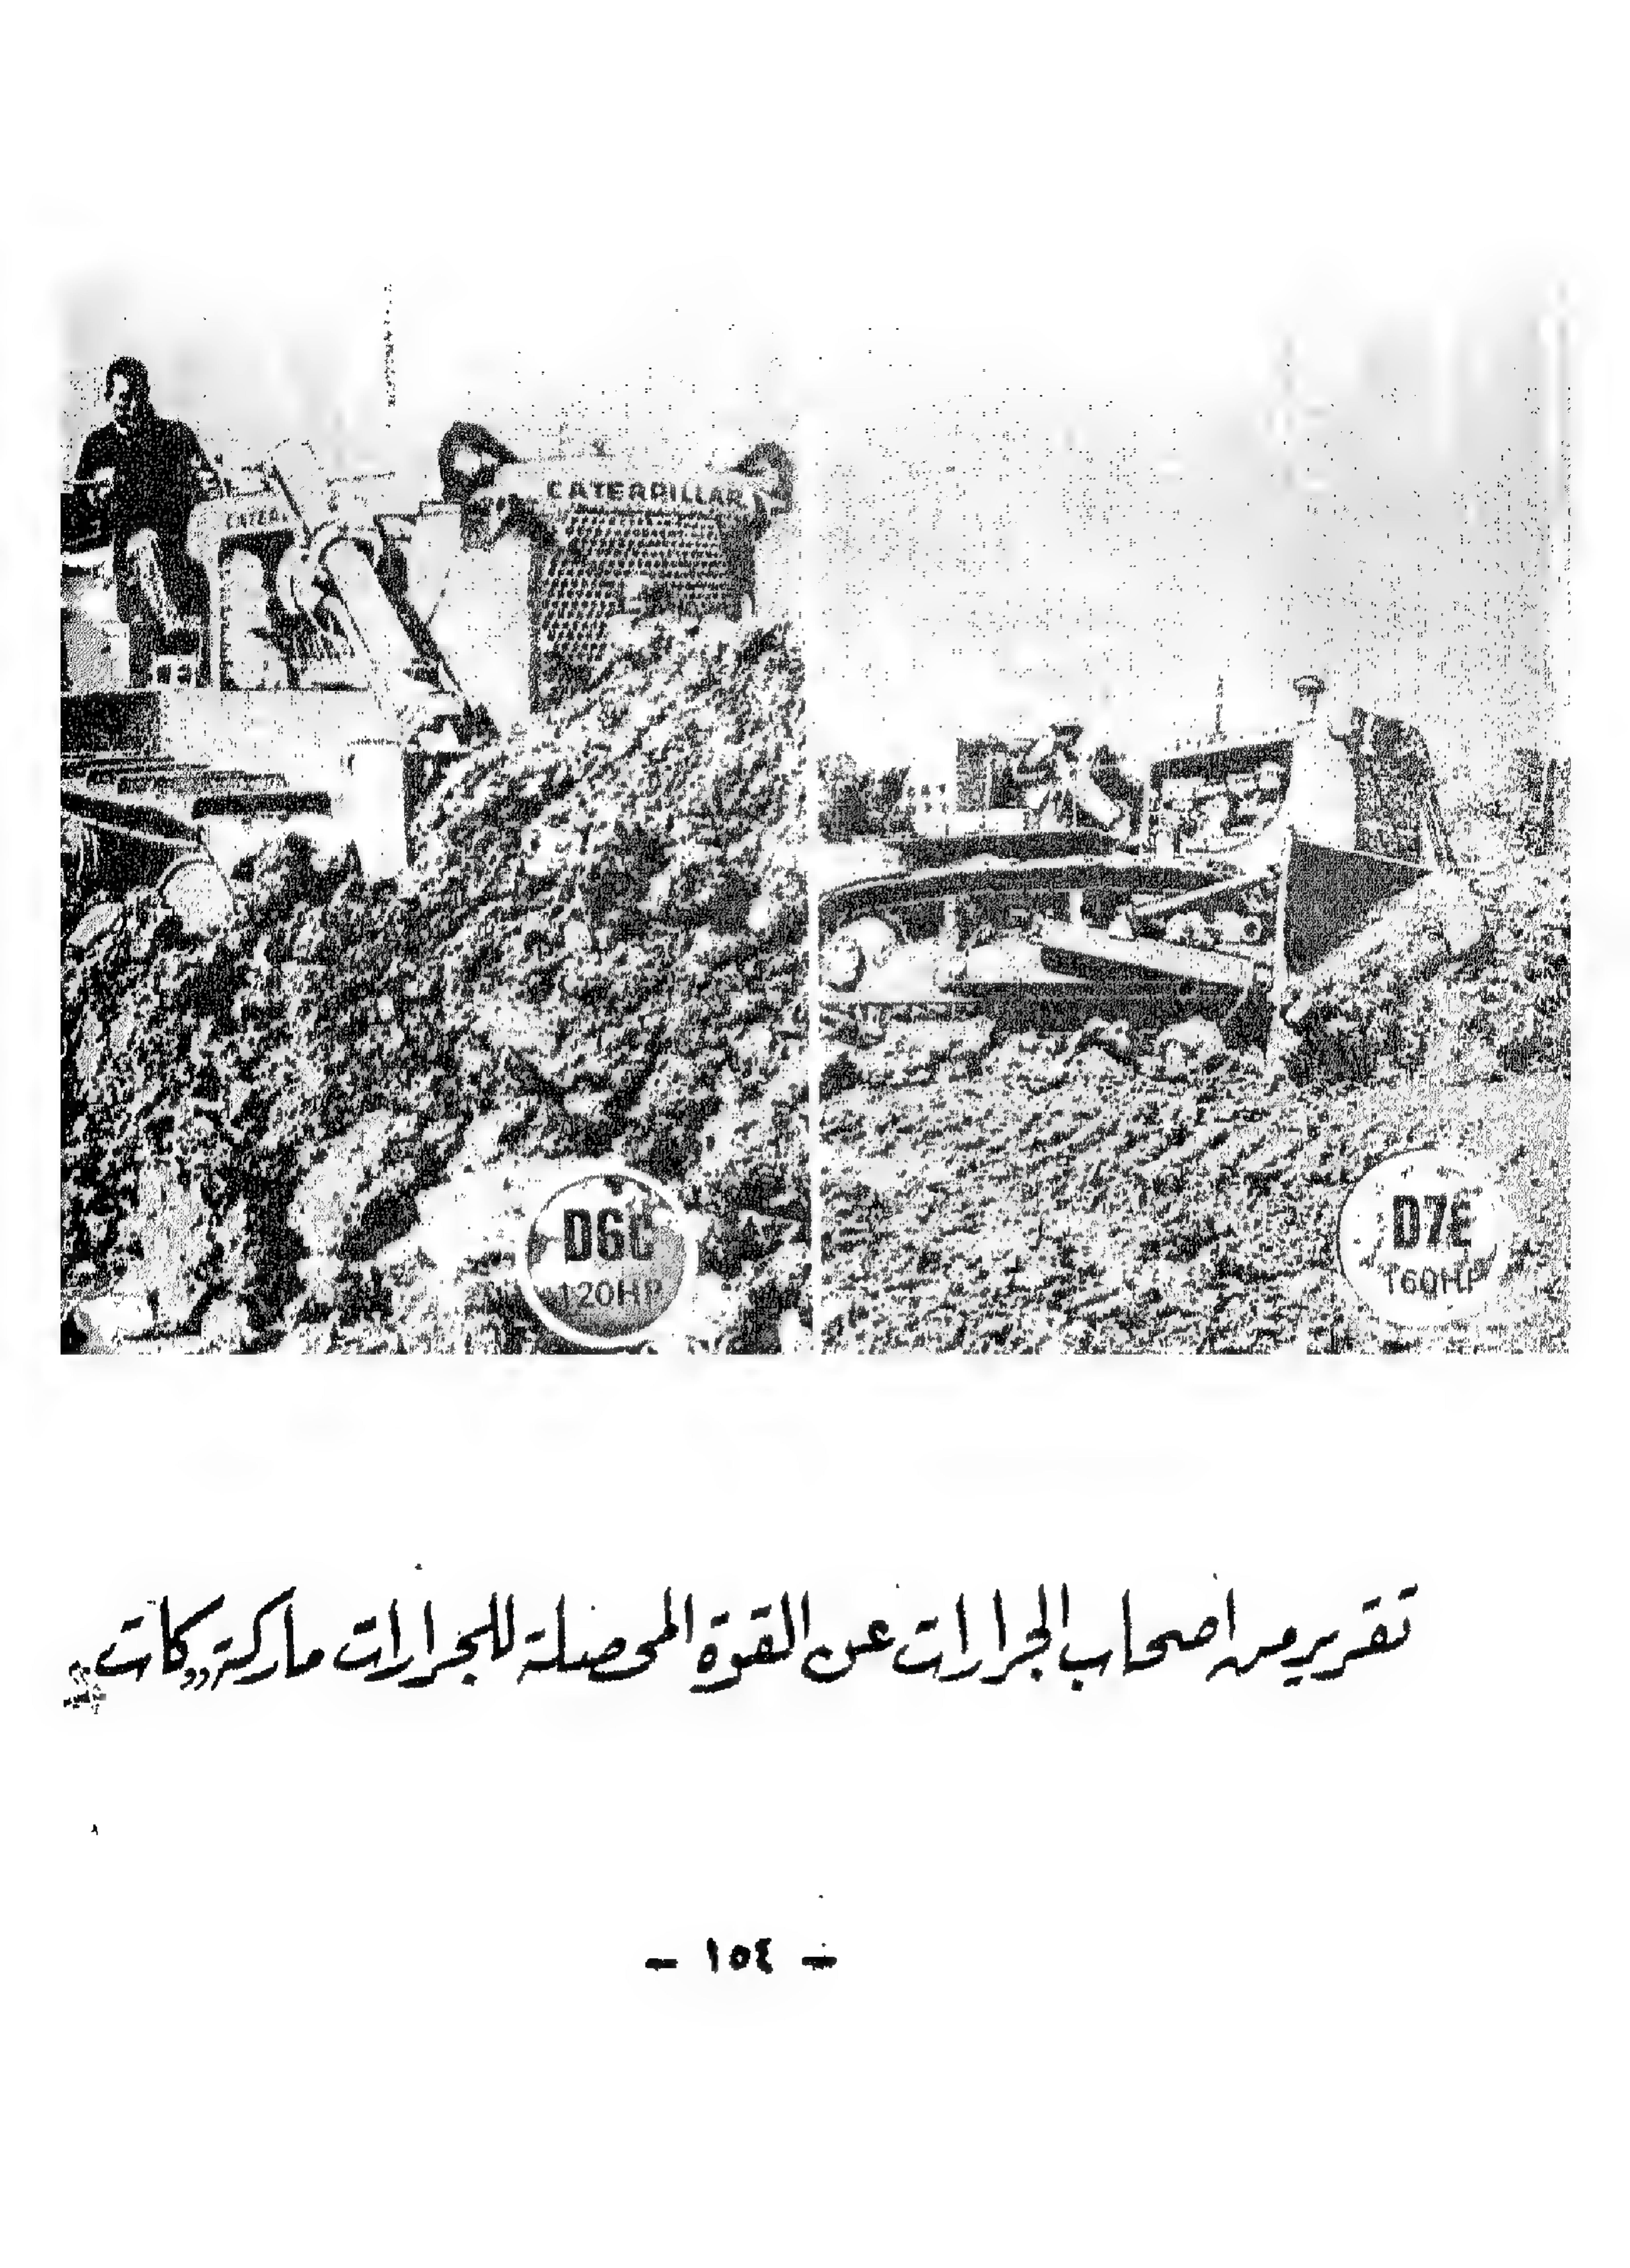 CATERPILLAR
D6C
120HP
D7E
160HP
تقرير من اصحاب الجرارات عن القوة المحصلة للجرارات ماركة „كات
- ١٥٤ -